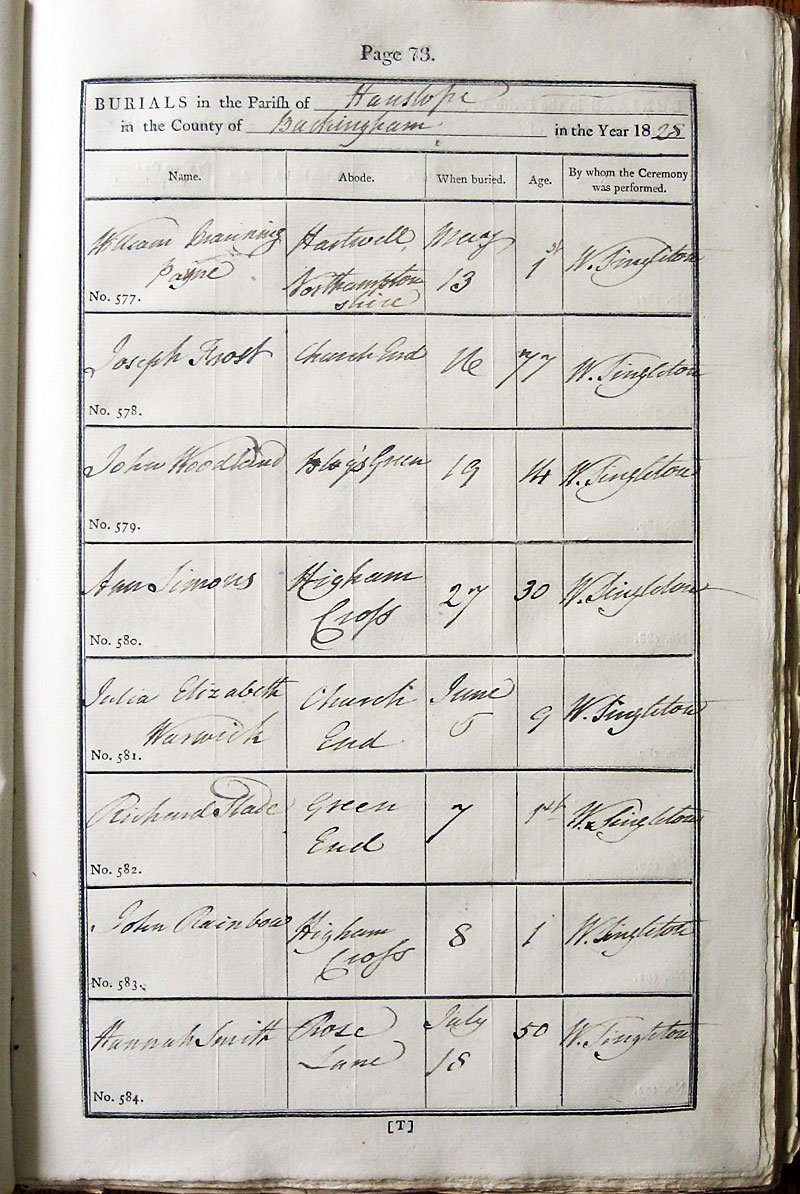 Page 73.
BURIALS in the Parish of Hanslope
in the County of Buckingham in the Year 1828
Name. Abode. When buried. Age. By whom the Ceremony was performed.
William Branning Hartwell May 1st W. Singleton
Payne Northampton 13
shire
No. 577.
Joseph Frost Church End 16 77 W. Singleton
No. 578.
John Woodland Green 19 14 W. Singleton
No. 579.
Ann Simons Higham 27 30 W. Singleton
Cross
No. 580.
Julia Elizabeth Church June 9 W. Singleton
Warwick End 5
No. 581.
Richard Slade Green 7 1st W. Singleton
End
No. 582.
John Rainbow Higham 8 1 W. Singleton
Cross
No. 583.
Hannah Smith Rose July 50 W. Singleton
Lane 18
No. 584.
[T]